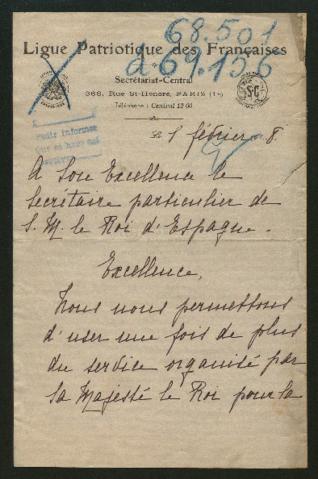 68.501
Ligue Patriotique des Françaises
d 69.156
Secrétariat-Central
368, Rue St-Honoré, PARIS (1er)
Téléphone : Central 12 60
1 février 8
Pedir informes
A Son Excellence le
Secrétaire particulier de
S. M. le Roi d'Espagne.
Excellence,
Nous nous permettons
d'user une fois de plus
du service organisé par
Sa Majesté le Roi pour la